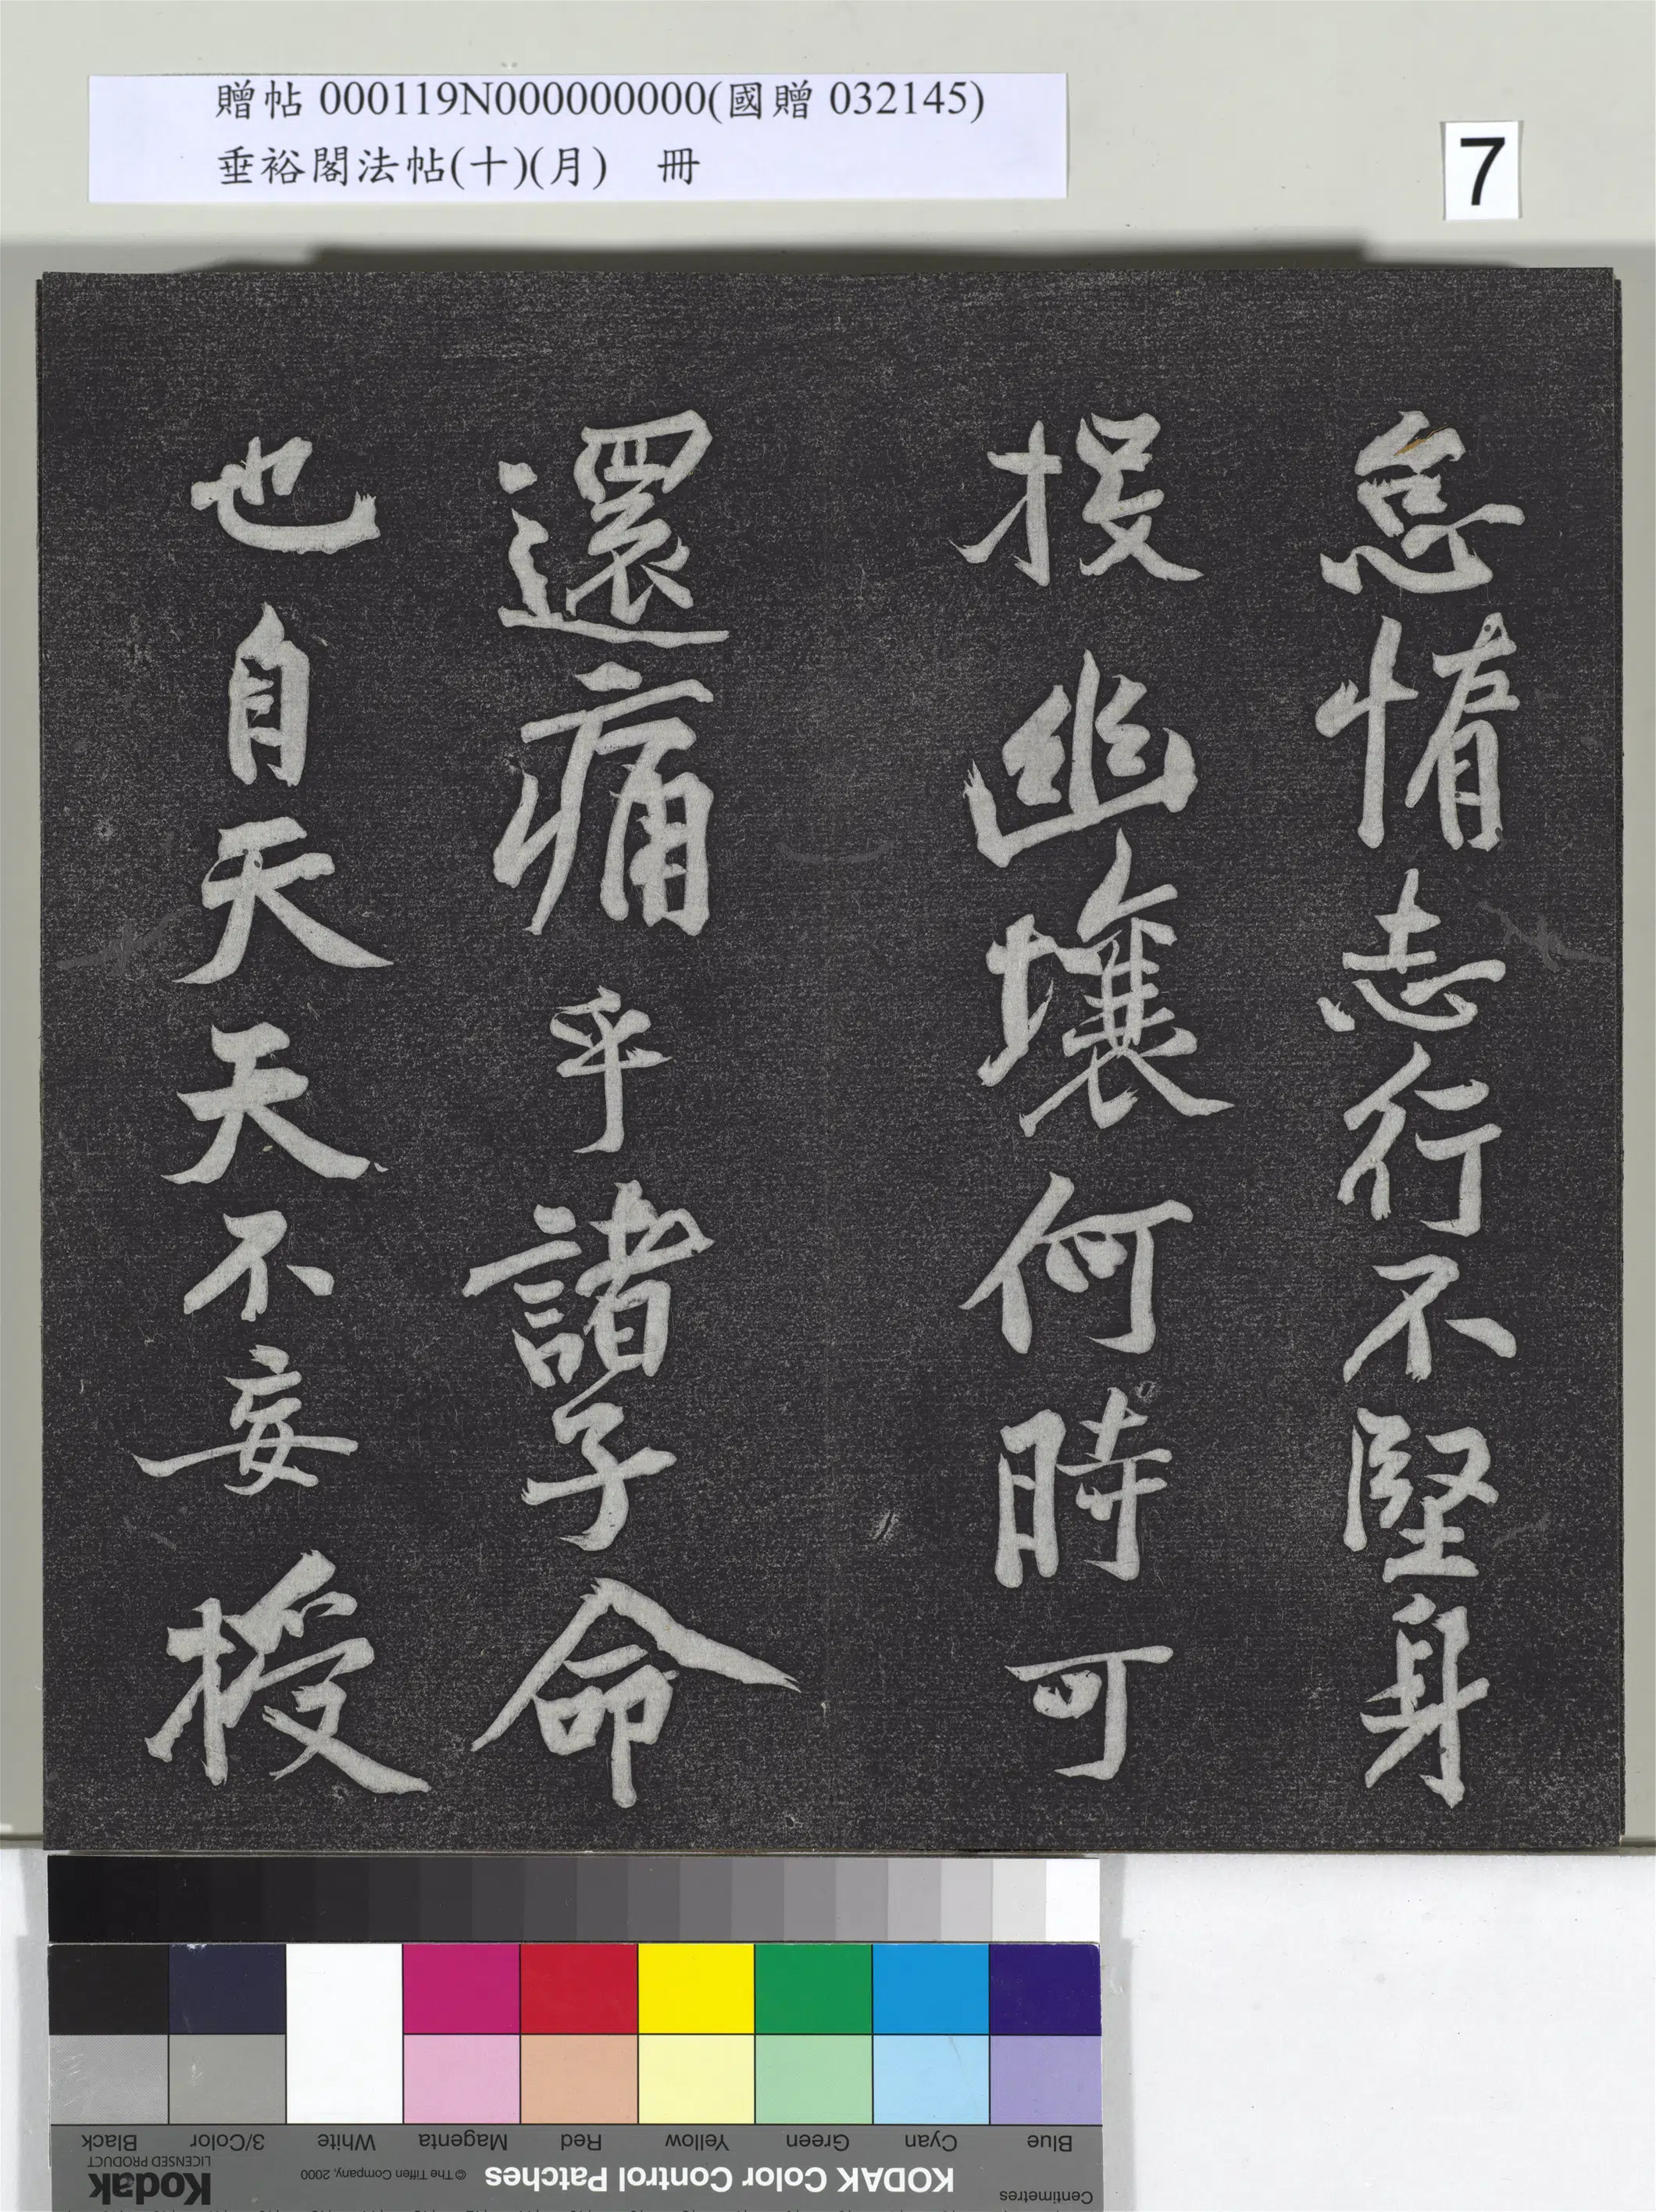 贈帖 000119N000000000(國贈 032145)
垂裕閣法帖(十)(月) 冊
7
怠惰志行不堅身
投幽壤何時可
還痛乎諸子命
也自天天不妄授
Black 3/Color White Magenta Red Yellow Green Cyan Blue
Kodak
LICENSED PRODUCT
© The Tiffen Company, 2000
KODAK Color Control Patches
Centimetres